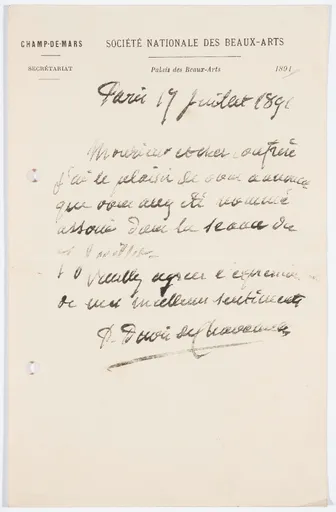 CHAMP-DE-MARS
SOCIÉTÉ NATIONALE DES BEAUX-ARTS
SECRÉTARIAT
Palais des Beaux-Arts
1891
Paris 17 Juillet 1891
Monsieur et cher confrère
j'ai le plaisir de vous annoncer
que vous avez été nommé
associé dans la séance du
Veuillez agréer l'expression
de mes meilleurs sentiments
P. Puvis de Chavannes